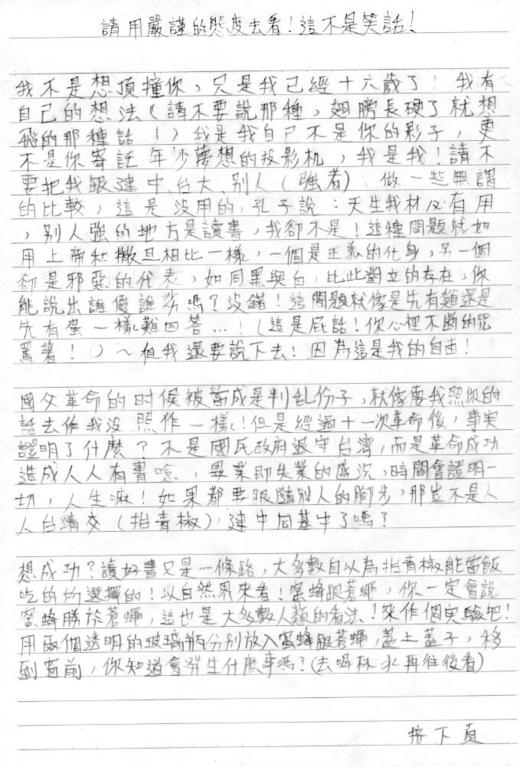 請用嚴謹的態度去看!這不是笑話!
我不是想頂撞你，只是我已經十六歲了!我有
自己的想法(請不要說那種，翅膀長硬了就想
飛的那種話!)我是我自己不是你的影子，更
不是你寄託年少夢想的投影机，我是我!請不
要把我跟建中、台大、別人(強者)，做一些無謂
的比較，這是沒用的，孔子說：天生我材必有用
，別人強的地方是讀書，我卻不是!這種問題就如
用上帝和撒旦相比一樣，一個是正義的化身，另一個
卻是邪惡的代表，如同黑與白，比此對立的存在，你
能說出誰優誰劣嗎?沒錯!這問題就像是先有雞還是
先有蛋一樣難回答…!(這是屁話!你心裡不斷的咒
罵著!)～但我還要說下去!因為這是我的自由!
國父革命的時候被當成是判乱份子，就像要我照你的
話去作我沒照作一樣!但是經過十一次革命後，事實
證明了什麼?不是國民政府退守台灣，而是革命成功
造成人人有書唸，畢業即失業的盛況，時間會證明一
切，人生嘛!如果都要跟隨別人的腳步，那豈不是人
人台清交(抬青椒)，建中同基中了嗎?
想成功?讀好書只是一條路，大多數自以為抬青椒能當飯
吃的的選擇的!以自然界來看!蜜蜂跟蒼蠅，你一定會說
蜜蜂勝於蒼蠅，這也是大多數人類的看法!來作個實驗吧!
用兩個透明的玻璃瓶分別放入蜜蜂跟蒼蠅，蓋上蓋子，移
到窗前，你知道會發生什麼事嗎?(去喝杯水再往後看)
按下頁